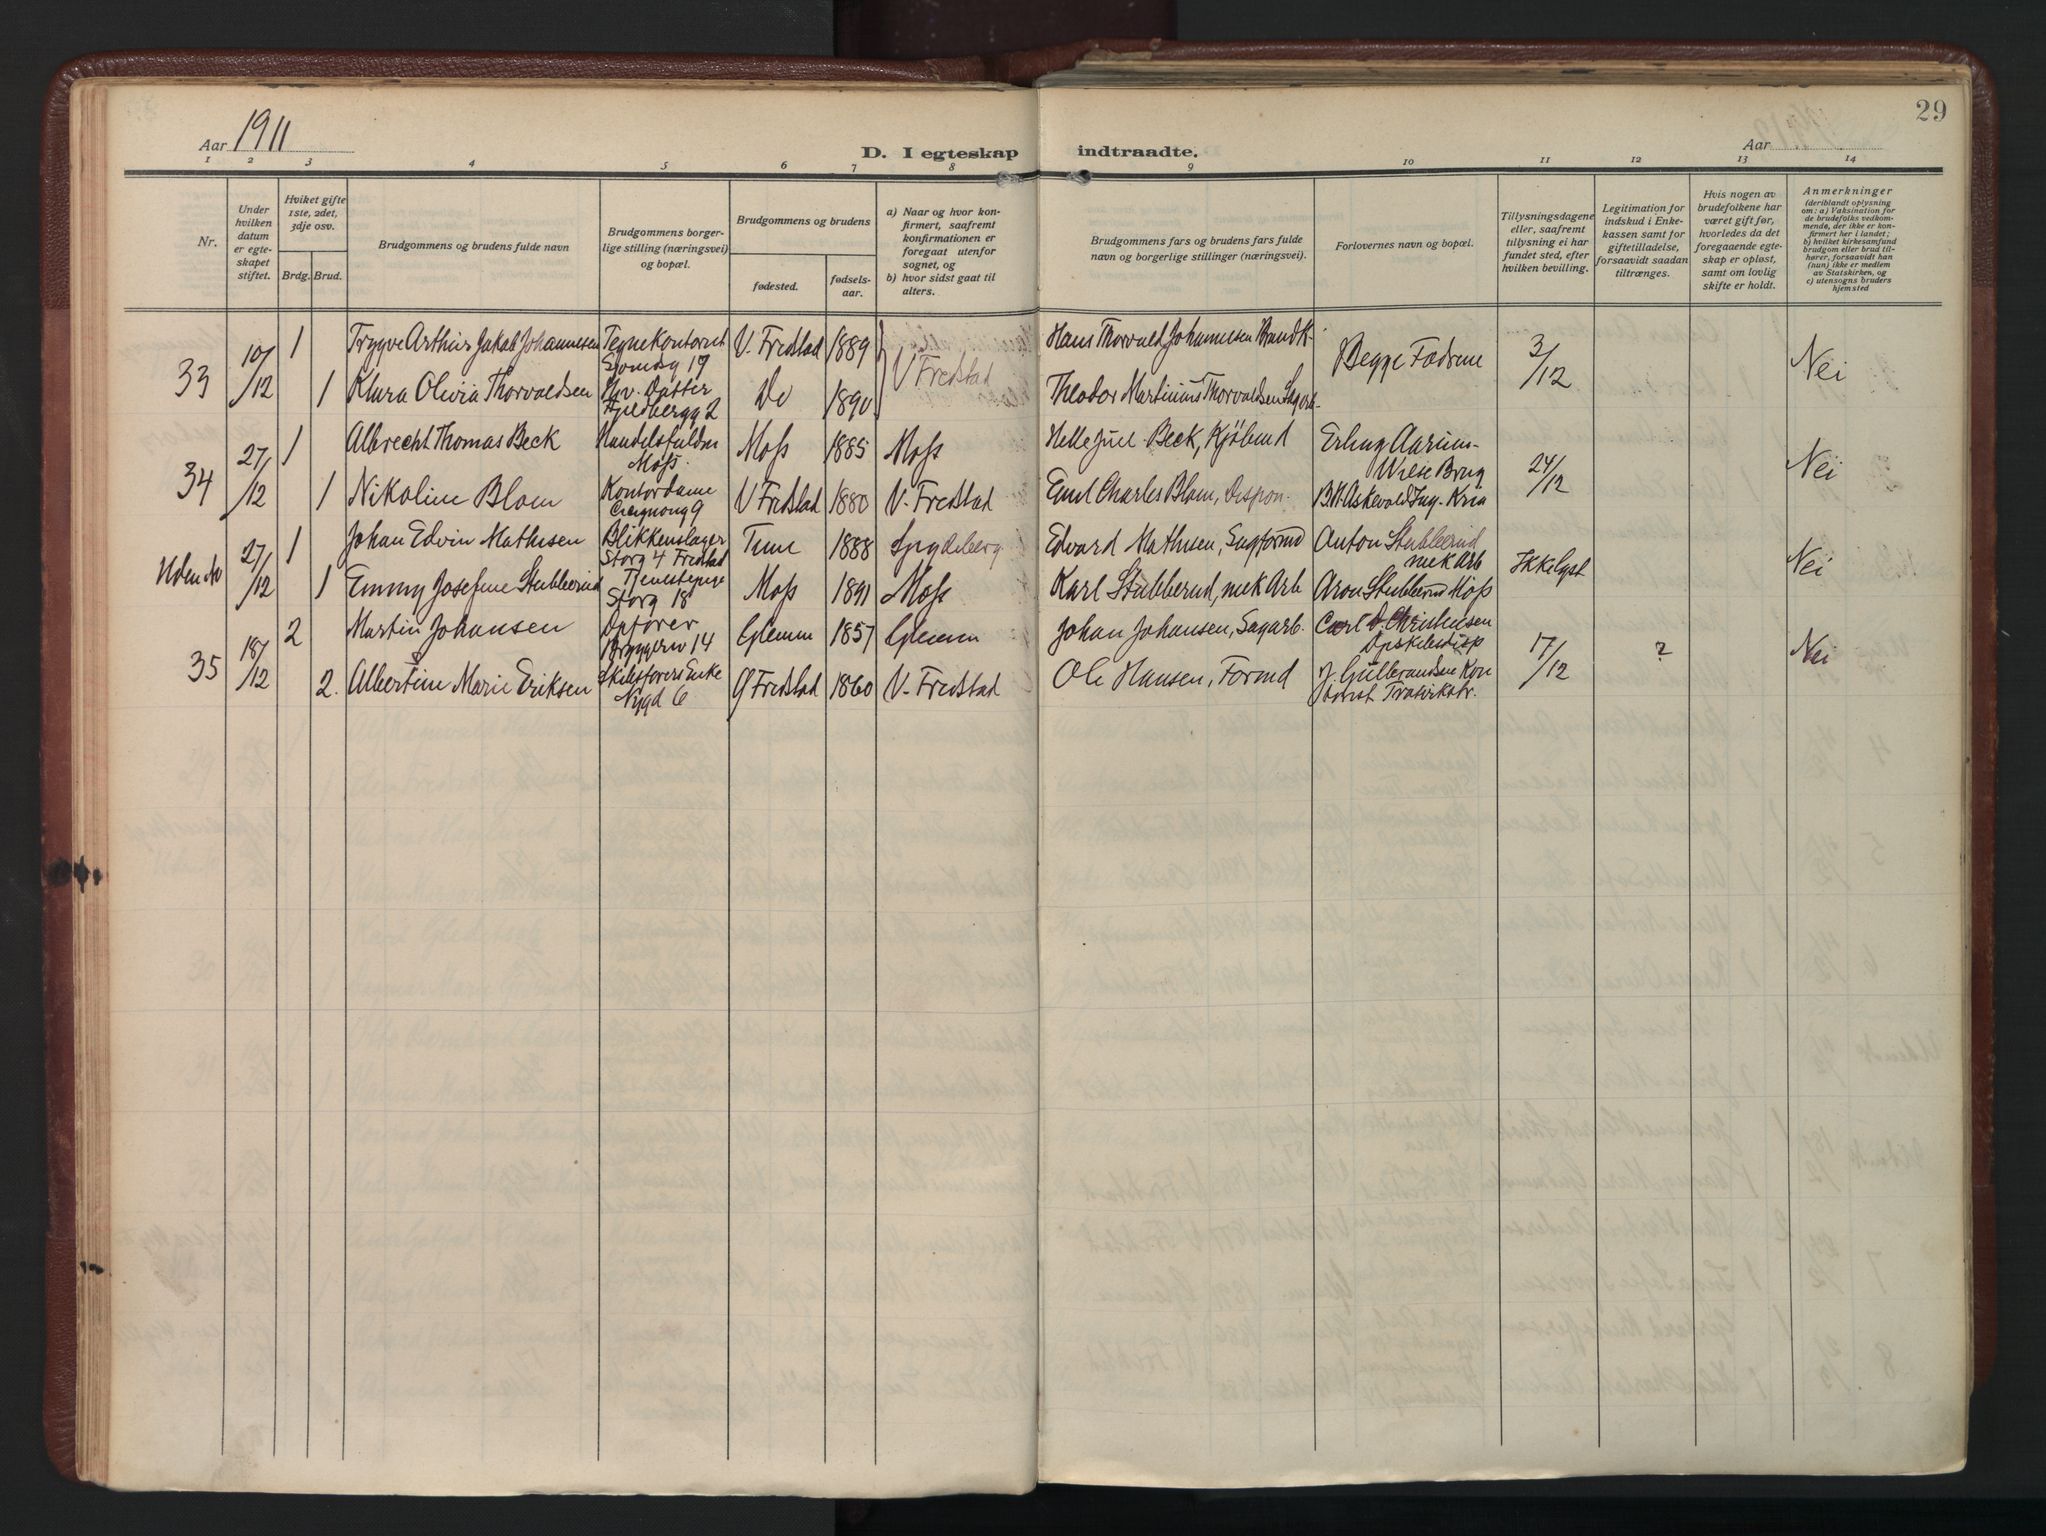 29
Aar 1911
D. I egteskap indtraadte.
Aar
1 2 3 4 5 6 7 8 9 10 11 12 13 14
Nr.
Under hvilken datum er egte-skapet stiftet.
Hviket gifte 1ste, 2det, 3dje osv.
Brdg. Brud.
Brudgommens og brudens fulde navn
Brudgommens borger-lige stilling (næringsvei) og bopæl.
Brudgommens og brudens
fødested.
fødsels-aar.
a) Naar og hvor kon-firmert, saafremt konfirmationen er foregaat utenfor sognet, og
b) hvor sidst gaat til alters.
Brudgommens fars og brudens fars fulde navn og borgerlige stillinger (næringsvei).
Forlovernes navn og bopæl.
Tillysningsdagene eller, saafremt tillysning ei har fundet sted, efter hvilken bevilling.
Legitimation for indskud i Enke-kassen samt for giftetilladelse, forsaavidt saadan tiltrænges.
Hvis nogen av brudefolkene har været gift før, hvorledes da det foregaaende egte-skap er opløst, samt om lovlig skifte er holdt.
Anmerkninger (deriblandt oplysning om: a) Vaksination for de brudefolks vedkom-mende, der ikke er kon-firmert her i landet; b) hvilket kirkesamfund brudgom eller brud til-hører, forsaavidt han (hun) ikke er medlem av Statskirken, og c) utensogns bruders hjemsted
33 10/12 1 Trygve Arthur Jakob Johannesen Tegnekontorist 17 V. Fredstad 1889 V Fredstad Hans Thorvald Johannesen Begge Fædrene 3/12 Nei
1 Klara Olivia Thorvaldsen Hv. Datter 2 Do 1890 Theodor Martinius Thorvaldsen Sagarb.
34 27/12 1 Albrecht Thomas Beck Handelsfuldm Moss Moss 1885 Moss Helle Juel Beck, Kjöbmd Erling Aarum Wiese Brug 24/12 Nei
1 Nikoline Blom Kontordame 9 V Fredstad 1880 V. Fredstad Emil Charles Blom, Dispon. B.W. Askevold Ing. Kria
Uden No 27/12 1 Johan Edvin Mathisen Blikkenslager Storg 4 Fredstad Tune 1888 Spydeberg Edvard Mathisen, Sagformd Anton Stubberud mek Arb Ikke lyst Nei
1 Emmy Josefine Stubberud Tjenestepige Storg 18 Moss 1891 Moss Karl Stubberud, mek Arb Aron Stubberud Moss
35 18/12 2 Martin Johansen Opsyer 14 Glemm 1857 Glemm Johan Johansen, Sagarb. Carl D. Christensen 17/12 ? Nei
2. Albertine Marie Eriksen Skibsförers Enke Nygd 6 G Fredstad 1860 V. Fredstad Ole Hansen, Formd J. Gulbrandsen Kontorist